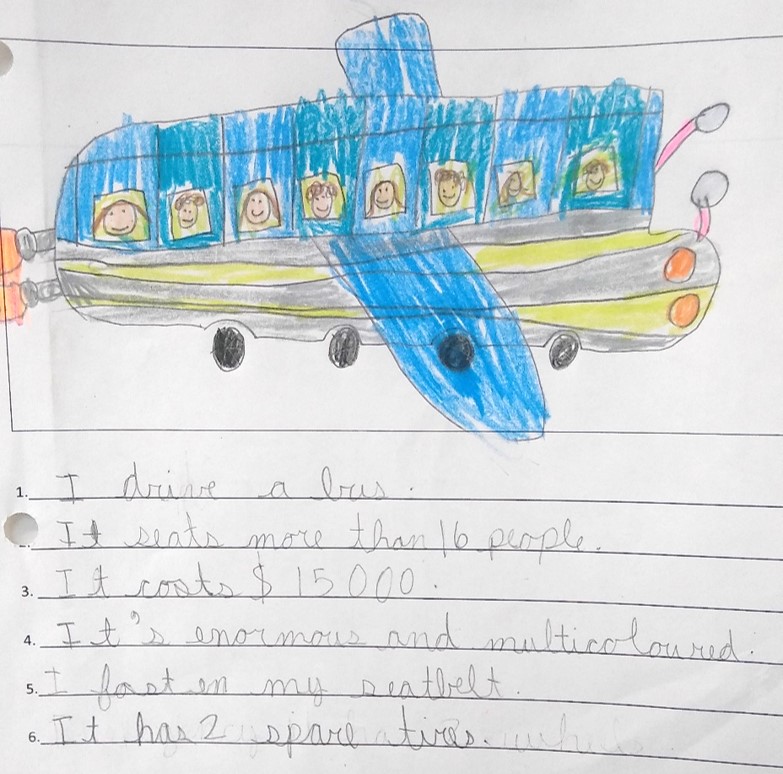 1. I drive a bus.
2. It seats more than 16 people.
3. It costs $15000.
4. It's enormous and multicoloured.
5. I fasten my seatbelt.
6. It has 2 spare tires.